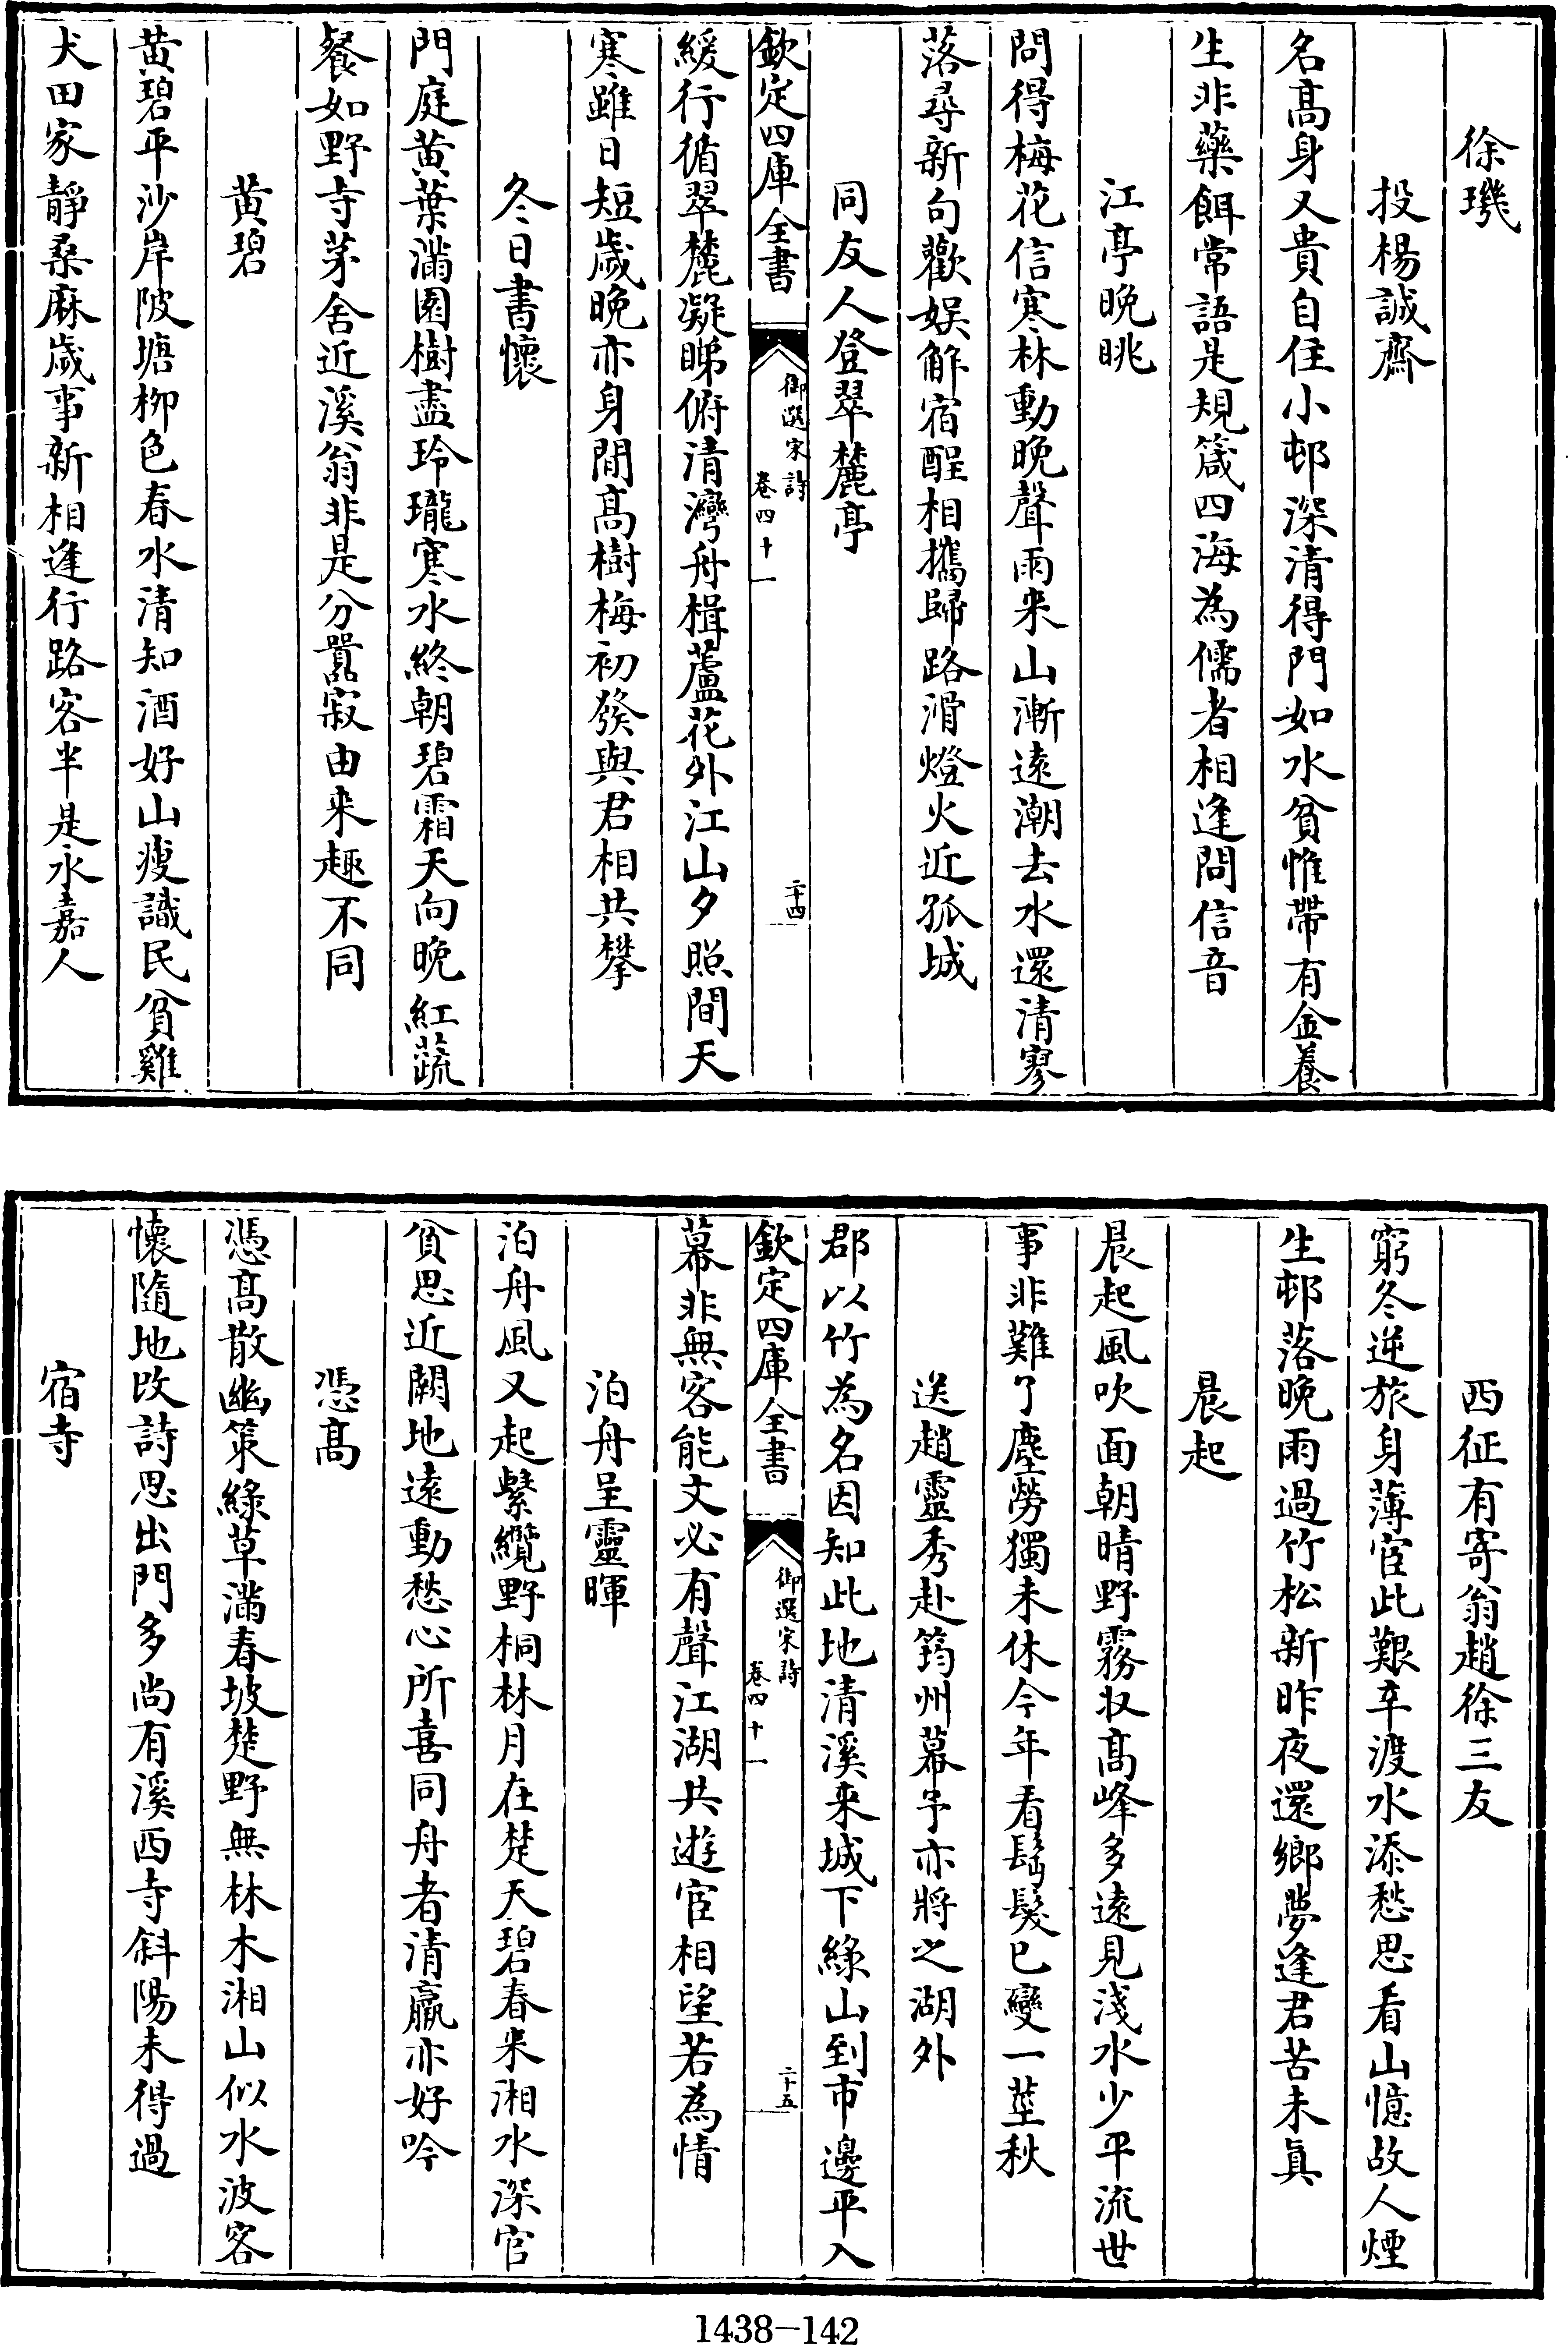 徐璣
投楊誠齋
名髙身又貴自住小邨深清得門如水貧惟帶有金養
生非藥餌常語是規箴四海為儒者相逢問信音
江亭晚眺
問得梅花信寒林動晚聲雨来山漸遠潮去水還清寥
落尋新句歡娱解宿酲相攜歸路滑燈火近孤城
同友人登翠麓亭
欽定四庫全書
御選宋詩
卷四十一
二十四
緩行循翠麓凝睇俯清灣舟楫蘆花外江山夕照間天
寒雖日短歲晚亦身閒髙樹梅初發與君相共攀
冬日書懷
門庭黄葉滿園樹盡玲瓏寒水終朝碧霜天向晚紅蔬
餐如野寺茅舍近溪翁非是分嚣寂由来趣不同
黄碧
黄碧平沙岸陂塘柳色春水清知酒好山瘦識民貧雞
犬田家靜桑麻歲事新相逢行路客半是永嘉人
西征有寄翁趙徐三友
窮冬逆旅身薄宦此艱辛渡水添愁思看山憶故人煙
生邨落晚雨過竹松新昨夜還鄉夢逢君苦未眞
晨起
晨起風吹面朝晴野霧收髙峰多遠見淺水少平流世
事非難了塵勞獨未休今年看鬅髮已變一莖秋
送趙靈秀赴筠州幕予亦將之湖外
郡以竹為名因知此地清溪來城下綠山到市邊平入
欽定四庫全書
御選宋詩
卷四十一
二十五
幕非無客能文必有聲江湖共遊宦相望若為情
泊舟呈靈暉
泊舟風又起繫纜野桐林月在楚天碧春来湘水深官
貧思近闕地遠動愁心所喜同舟者清羸亦好吟
憑髙
憑髙散幽策綠草滿春坡楚野無林木湘山似水波客
懷隨地改詩思出門多尚有溪西寺斜陽未得過
宿寺
1438-142